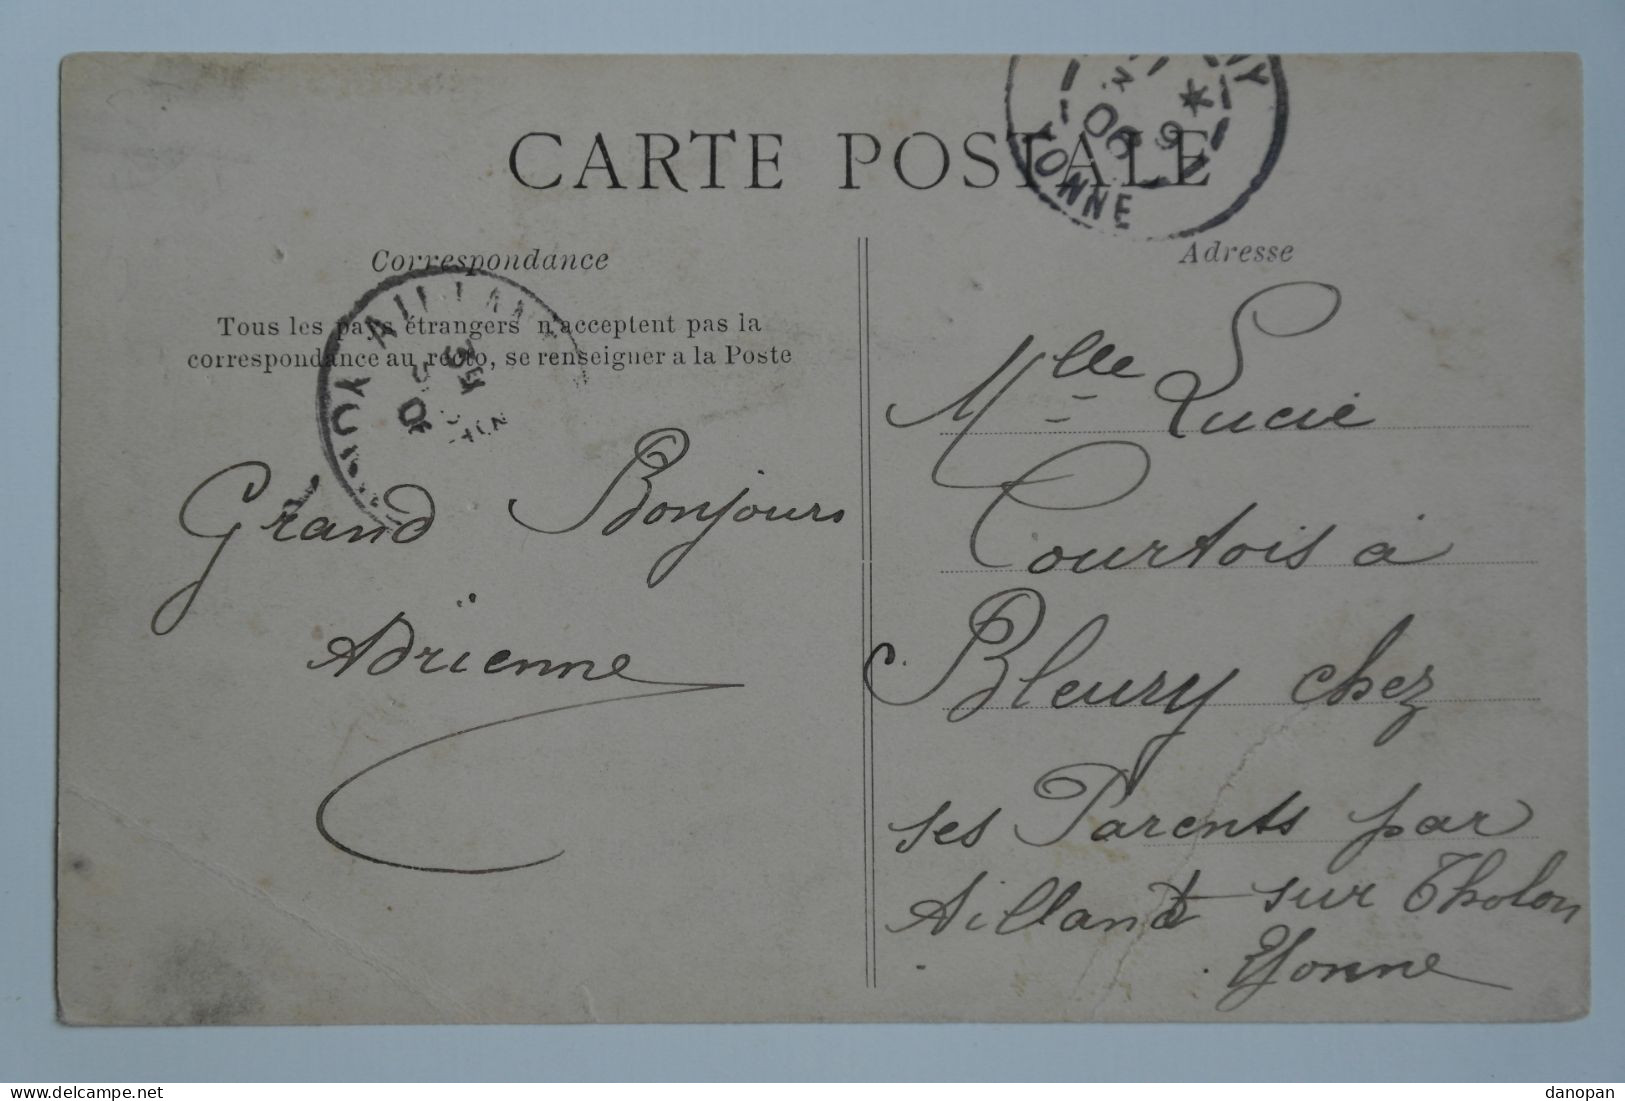 CARTE POSTALE
YONNE
06
Correspondance
Adresse
Tous les pays étrangers n'acceptent pas la
correspondance au recto, se renseigner a la Poste
AILLANT
Grand Bonjours
Adrïenne
Mlle Lucie
Courtois à
Bleury chez
ses Parents par
Aillant sur Tholon
Yonne
delcampe.net
danopan